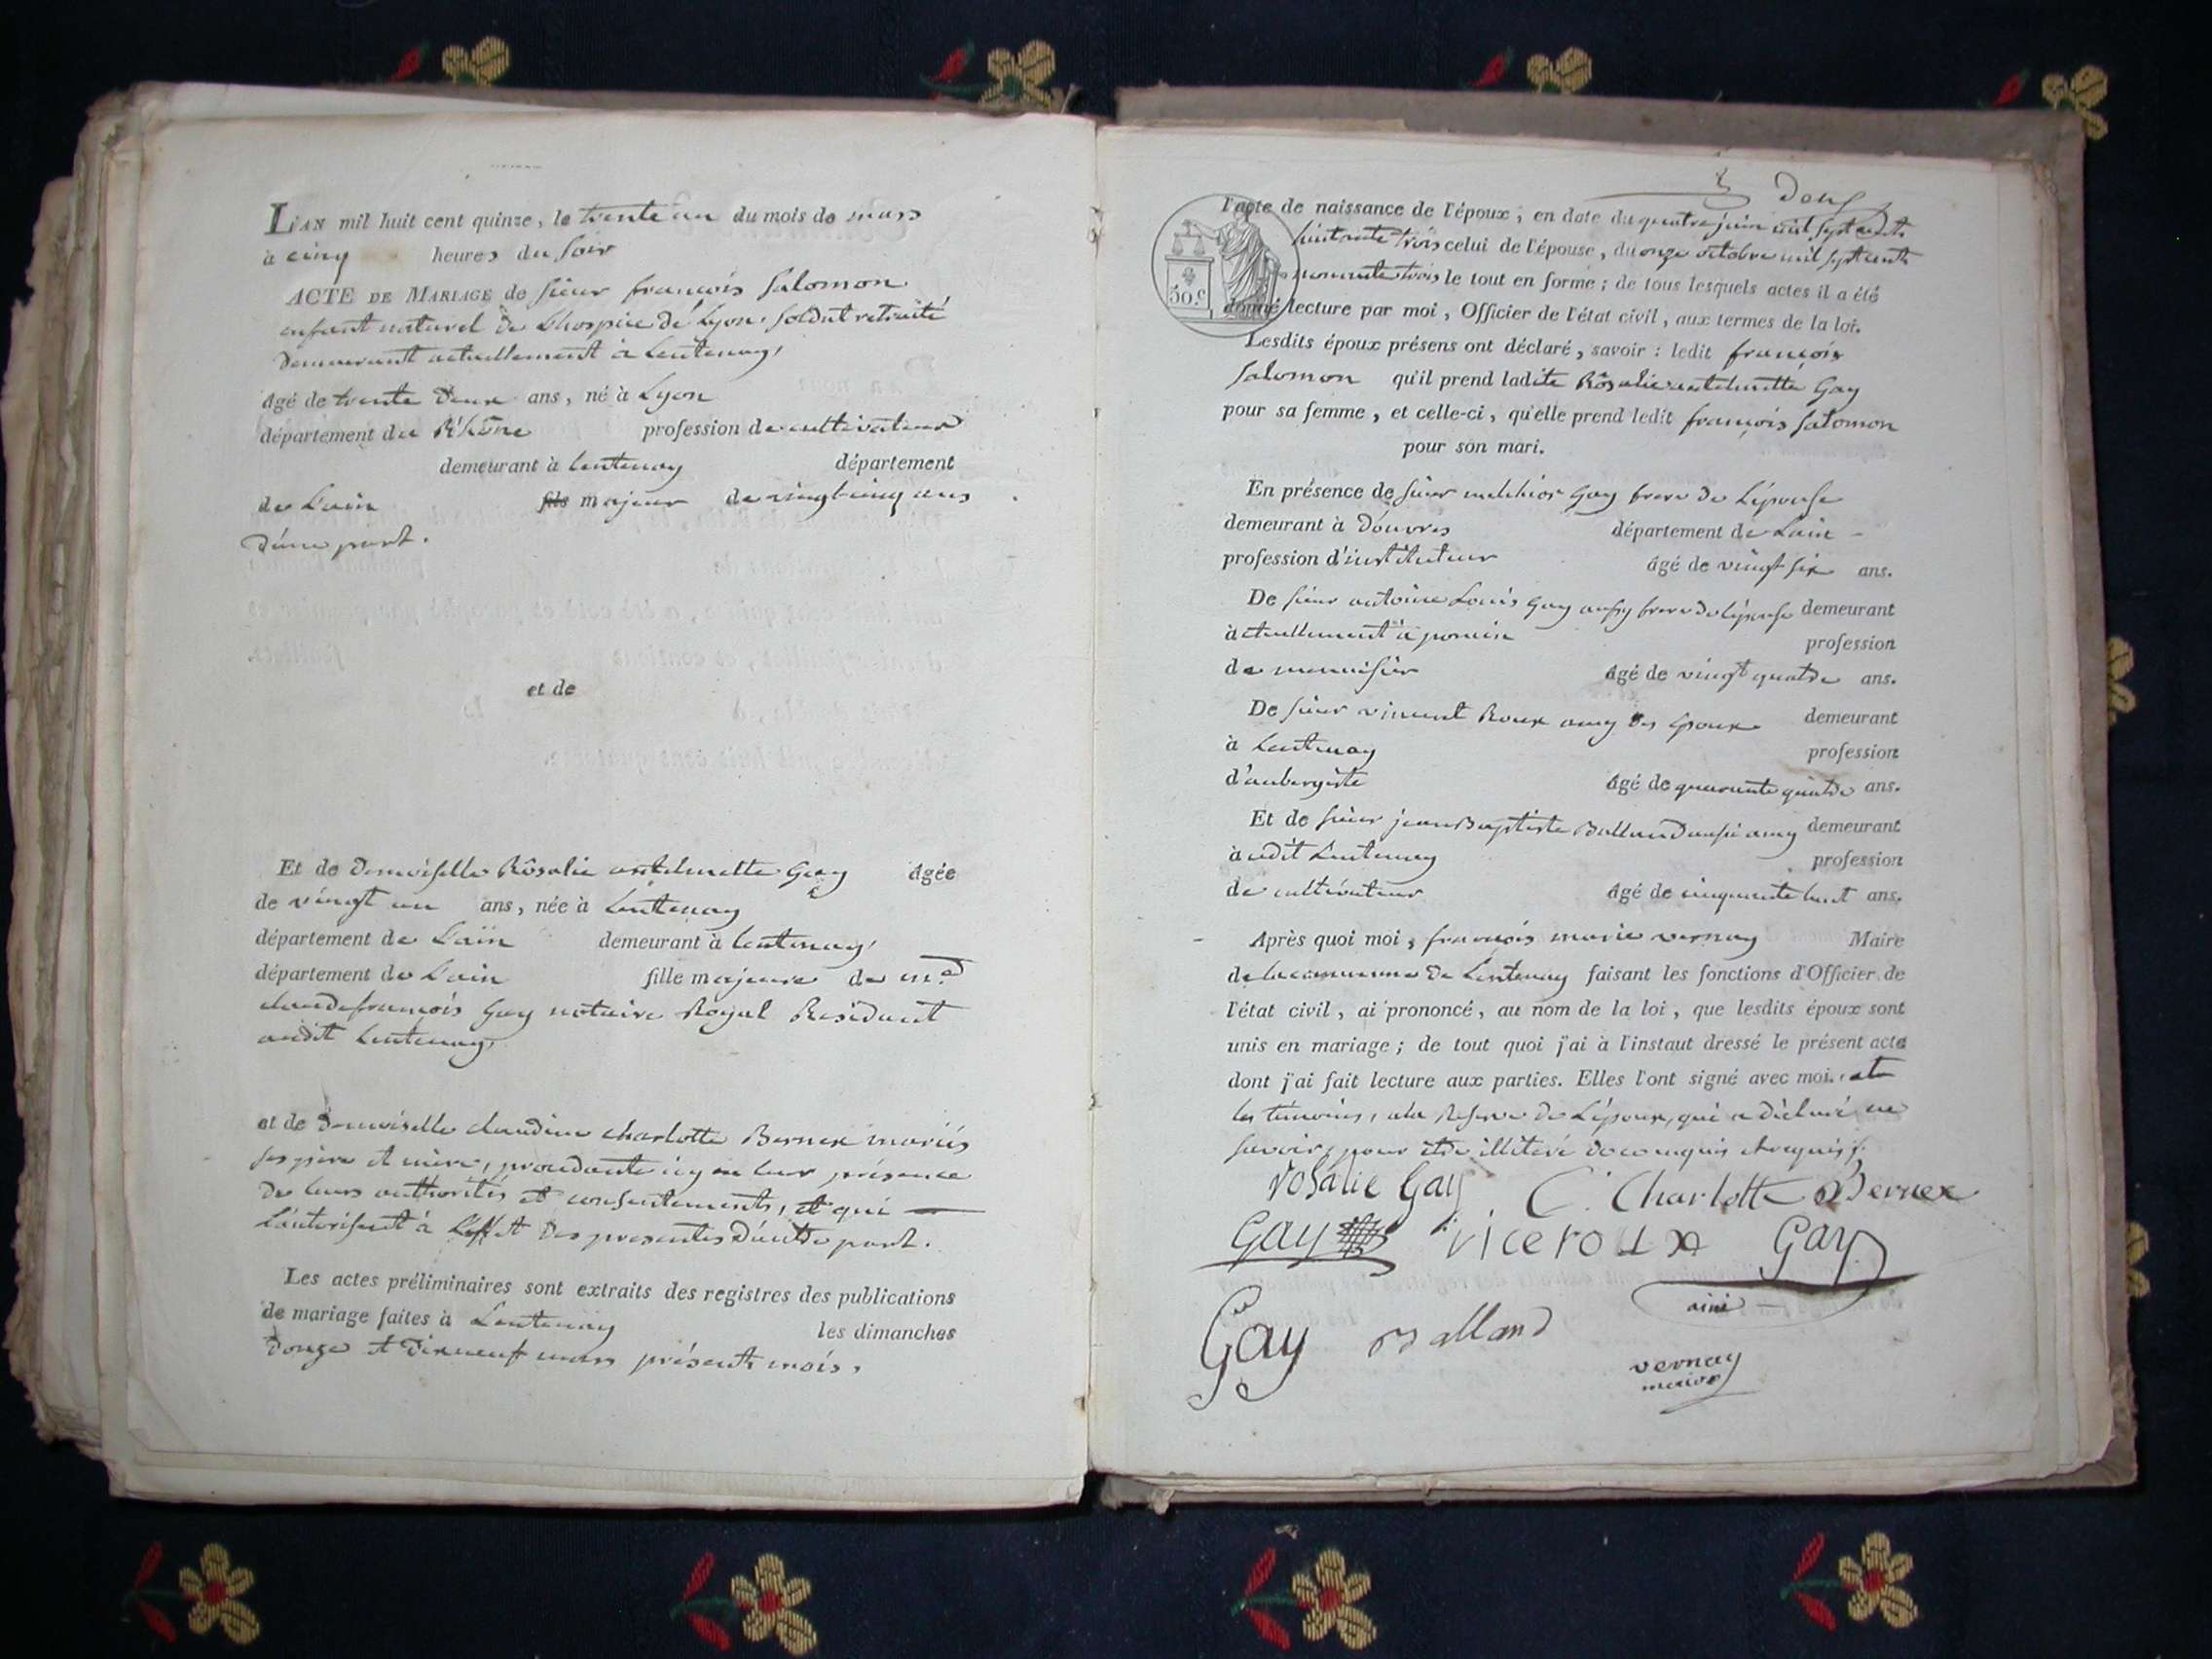 L'AN mil huit cent quinze, le trente un du mois de mars
à cinq heures du soir
ACTE DE MARIAGE de sieur françois Salomon
enfant naturel de L'hospice de Lyon, Soldat retraité
demeurant actuellement à Lentenay,
âgé de trente deux ans, né à Lyon
département du Rhône profession de cultivateur
demeurant à Lentenay département
de L'ain fils majeur de vingt cinq ans
d'une part.
et de
Et de demoiselle Rôsalie antelmette Gay âgée
de vingt un ans, née à Lentenay
département de L'ain demeurant à Lentenay,
département de L'ain fille majeure de
claude françois Gay notaire Royal Residant
audit Lentenay,
et de demoiselle claudine charlotte Bernex mariés
ses père et mère, icy en leur présence
de leurs authorités et consentements, et qui
L'autorisent à L'effet des presentes d'autre part.
Les actes préliminaires sont extraits des registres des publications
de mariage faites à Lentenay les dimanches
douze et dix neuf mars présent mois,
Deux
l'acte de naissance de l'époux, en date du quatre juin mil sept cents
trois celui de l'épouse, du onze octobre mil sept cents
nonante trois le tout en forme; de tous lesquels actes il a été
donné lecture par moi, Officier de l'état civil, aux termes de la loi.
50.c
Lesdits époux présens ont déclaré, savoir : ledit françois
Salomon qu'il prend ladite Rôsalie antelmette Gay
pour sa femme, et celle-ci, qu'elle prend ledit françois Salomon
pour son mari.
En présence de sieur melchior Gay frere de L'épouse
demeurant à Douvres département de Lain
profession d'instituteur âgé de vingt six ans.
De sieur antoine Louis Gay aussy frere de l'épouse demeurant
actuellement à poncin profession
de menuisier âgé de vingt quatre ans.
De sieur vincent Roux amy des époux demeurant
à Lentenay profession
d'aubergiste âgé de quarante quatre ans.
Et de sieur jean Baptiste Balland aussi amy demeurant
audit Lentenay profession
de cultivateur âgé de cinquante huit ans.
Après quoi moi, françois marie vernay Maire
de la commune de Lentenay faisant les fonctions d'Officier de
l'état civil, ai prononcé, au nom de la loi, que lesdits époux sont
unis en mariage; de tout quoi j'ai à l'instant dressé le présent acte
dont j'ai fait lecture aux parties. Elles l'ont signé avec moi. et
les témoins, a la Reserve de L'époux, qui a déclaré ne
savoir, pour être illiteré de ce enquis et requis.
Rosalie Gay C. Charlotte Bernex
Gay viceroux Gay
ainé
Gay Balland
vernay
maire